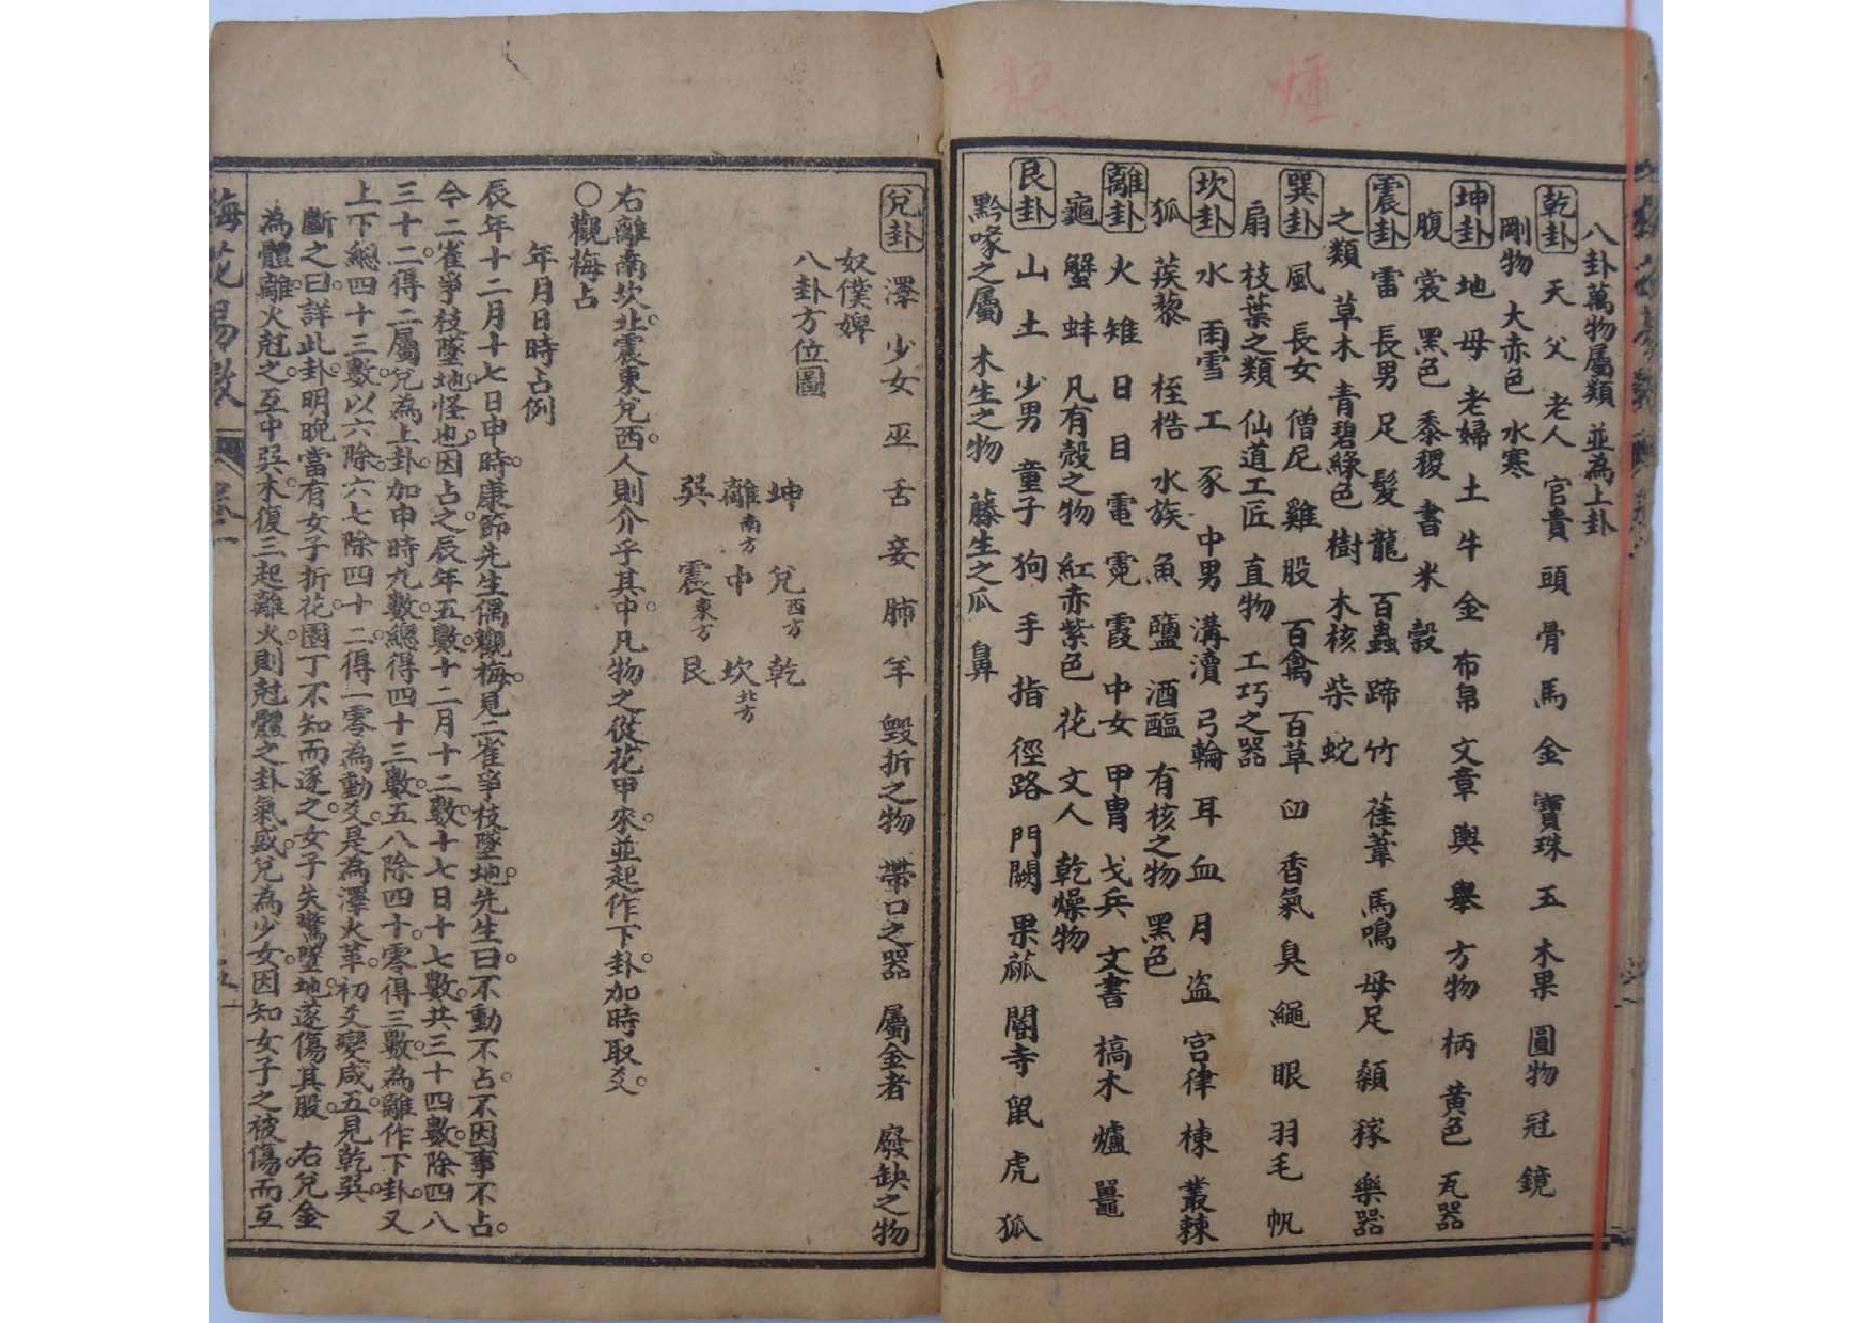 八卦萬物屬類 並為上卦
乾卦 天 父 老人 官貴 頭 骨 馬 金 寶珠 玉 木果 圓物 冠 鏡
剛物 大赤色 水寒
坤卦 地 母 老婦 土 牛 金 布帛 文章 輿 轝 方物 柄 黃色 瓦器
腹 裳 黑色 黍稷 書 米 穀
震卦 雷 長男 足 髮 龍 百蟲 蹄 竹 萑葦 馬鳴 母足 顙 稼 樂器
之類 草木 青碧綠色 樹 木核 柴 蛇
巽卦 風 長女 僧尼 雞 股 百禽 百草 臼 香氣 臭 繩 眼 羽毛 帆
扇 枝葉之類 仙道工匠 直物 工巧之器
坎卦 水 雨雪 工 豕 中男 溝瀆 弓輪 耳 血 月 盜 宮律 棟 叢棘
狐 蒺藜 桎梏 水族 魚 鹽 酒醢 有核之物 黑色
離卦 火 雉 日 目 電 霓 霞 中女 甲冑 戈兵 文書 槁木 爐 鼉
龜 蟹 蚌 凡有殼之物 紅赤紫色 花 文人 乾燥物
艮卦 山 土 少男 童子 狗 手 指 徑路 門闕 果蓏 閽寺 鼠 虎 狐
黔喙之屬 木生之物 藤生之瓜 鼻
兌卦 澤 少女 巫 舌 妾 肺 羊 毀折之物 帶口之器 屬金者 廢缺之物
奴僕婢
八卦方位圖
坤 兌西方 乾
離南方 中 坎北方
巽 震東方 艮
右離南坎北。震東兌西。人則介乎其中。凡物之從花甲來。並起作下卦。加時取爻。
○觀梅占
年月日時占例
辰年十二月十七日申時。康節先生偶觀梅。見二雀爭枝墜地。先生曰。不動不占。不因事不占。
今二雀爭枝墜地。怪也。因占之。辰年五數。十二月十二數。十七日十七數。共三十四數。除四八
三十二。得二。屬兌為上卦。加申時九數。總得四十三數。五八除四十。零得三數。為離作下卦。又
上下總四十三數。以六除。六七除四十二。得一零為動爻。是為澤火革。初爻變咸。五見乾巽
斷之曰。詳此卦。明晚當有女子折花。園丁不知而逐之。女子失驚墜地。遂傷其股。 右兌金
為體。離火尅之。互中巽木。復三起離火。則尅體之卦氣盛。兌為少女。因知女子之被傷。而互
梅花易數 卷一